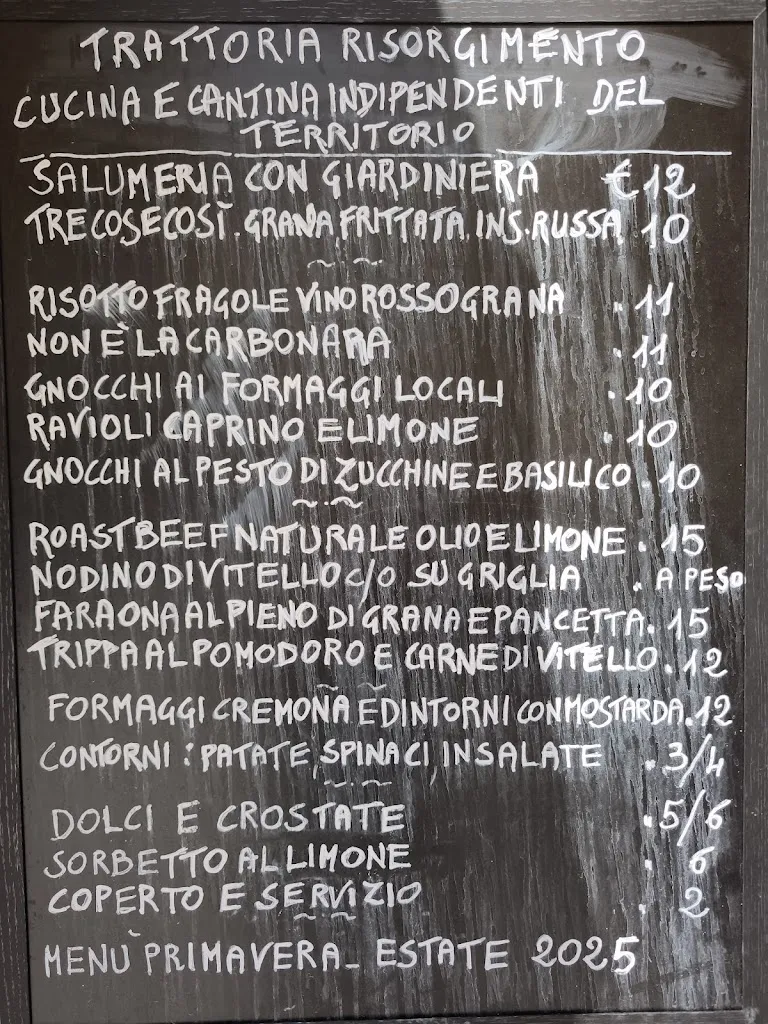 TRATTORIA RISORGIMENTO
CUCINA E CANTINA INDIPENDENTI DEL
TERRITORIO
SALUMERIA CON GIARDINIERA € 12
TRECOSECOSÌ. GRANA, FRITTATA, INS. RUSSA 10
RISOTTO FRAGOLE VINO ROSSO GRANA " 11
NON È LA CARBONARA " 11
GNOCCHI AI FORMAGGI LOCALI " 10
RAVIOLI CAPRINO E LIMONE " 10
GNOCCHI AL PESTO DI ZUCCHINE E BASILICO . 10
ROASTBEEF NATURALE OLIO E LIMONE . 15
NODINO DI VITELLO C/O SU GRIGLIA " A PESO
FARAONA AL PIENO DI GRANA E PANCETTA . 15
TRIPPA AL POMODORO E CARNE DI VITELLO . 12
FORMAGGI CREMONA E DINTORNI CON MOSTARDA . 12
CONTORNI : PATATE, SPINACI, INSALATE " 3/4
DOLCI E CROSTATE " 5/6
SORBETTO AL LIMONE " 6
COPERTO E SERVIZIO " 2
MENÙ PRIMAVERA - ESTATE 2025